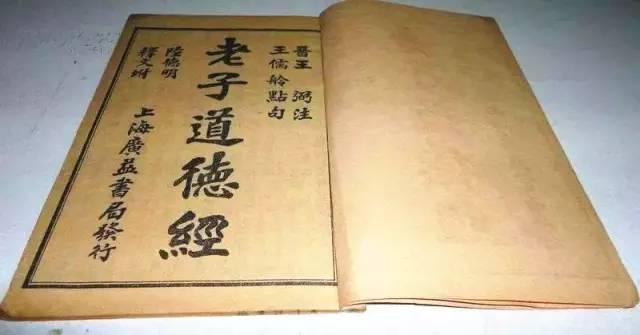 晋王弼注
王儒舲點句
老子道德經
陸德明
釋文坿
上海廣益書局發行